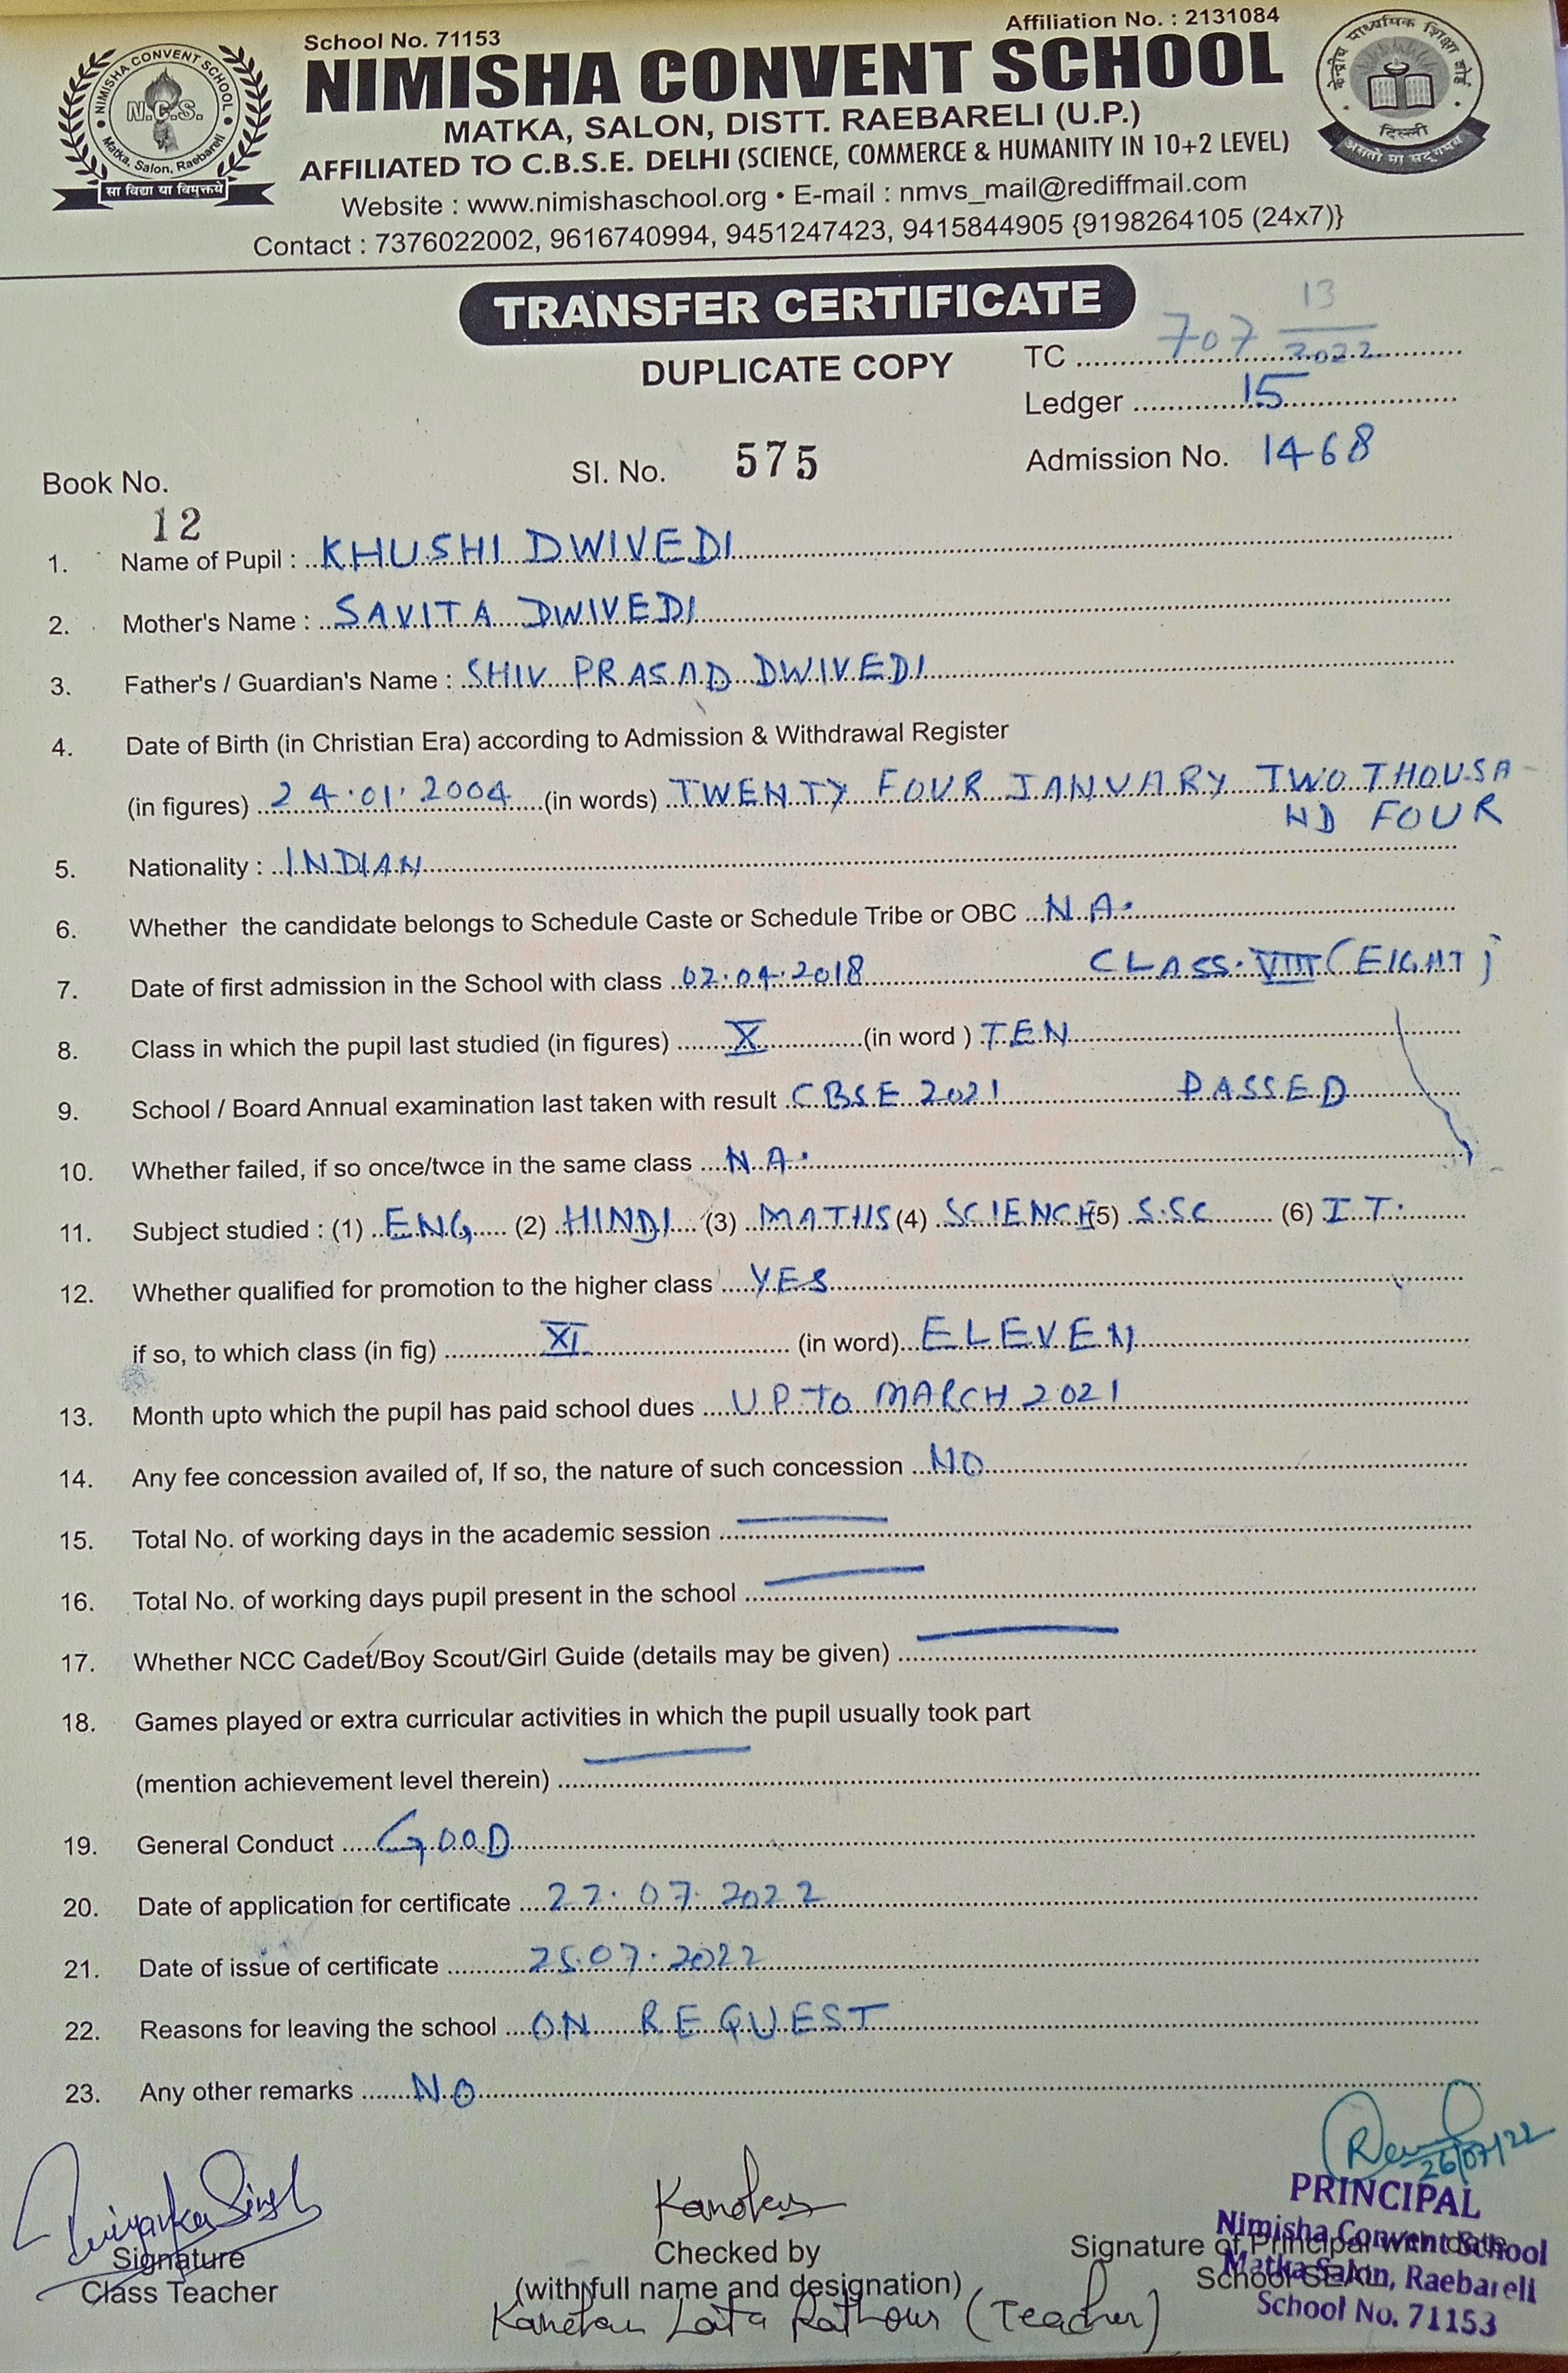 School No. 71153
Affiliation No. : 2131084
NIMISHA CONVENT SCHOOL
MATKA, SALON, DISTT. RAEBARELI (U.P.)
AFFILIATED TO C.B.S.E. DELHI (SCIENCE, COMMERCE & HUMANITY IN 10+2 LEVEL)
Website : www.nimishaschool.org • E-mail : nmvs_mail@rediffmail.com
Contact : 7376022002, 9616740994, 9451247423, 9415844905 {9198264105 (24x7)}
NIMISHA CONVENT SCHOOL
N.C.S.
Matka, Salon, Raebareli
सा विद्या या विमुक्तये
केन्द्रीय माध्यमिक शिक्षा बोर्ड
दिल्ली
असतो मा सद्गमय
TRANSFER CERTIFICATE
DUPLICATE COPY
TC 707 13/2022
Ledger 15
Book No. 12
Sl. No. 575
Admission No. 1468
1. Name of Pupil : KHUSHI DWIVEDI
2. Mother's Name : SAVITA DWIVEDI
3. Father's / Guardian's Name : SHIV PRASAD DWIVEDI
4. Date of Birth (in Christian Era) according to Admission & Withdrawal Register
(in figures) 24.01.2004 (in words) TWENTY FOUR JANUARY TWO THOUSA-
ND FOUR
5. Nationality : INDIAN
6. Whether the candidate belongs to Schedule Caste or Schedule Tribe or OBC N.A.
7. Date of first admission in the School with class 02.04.2018 CLASS. VIII (EIGHT)
8. Class in which the pupil last studied (in figures) X (in word ) TEN
9. School / Board Annual examination last taken with result CBSE 2021 PASSED
10. Whether failed, if so once/twce in the same class N.A.
11. Subject studied : (1) ENG (2) HINDI (3) MATHS (4) SCIENCE (5) S.SC (6) I.T.
12. Whether qualified for promotion to the higher class YES
if so, to which class (in fig) XI (in word) ELEVEN
13. Month upto which the pupil has paid school dues UP TO MARCH 2021
14. Any fee concession availed of, If so, the nature of such concession NO
15. Total No. of working days in the academic session
16. Total No. of working days pupil present in the school
17. Whether NCC Cadet/Boy Scout/Girl Guide (details may be given)
18. Games played or extra curricular activities in which the pupil usually took part
(mention achievement level therein)
19. General Conduct GOOD
20. Date of application for certificate 22.07.2022
21. Date of issue of certificate 25.07.2022
22. Reasons for leaving the school ON REQUEST
23. Any other remarks NO
Priyanka Singh
Signature
Class Teacher
Checked by
(with full name and designation)
Kanchan Lata Rathour (Teacher)
26/07/22
Signature of Principal with date
School SEAL
PRINCIPAL
Nimisha Convent School
Matka Salon, Raebareli
School No. 71153